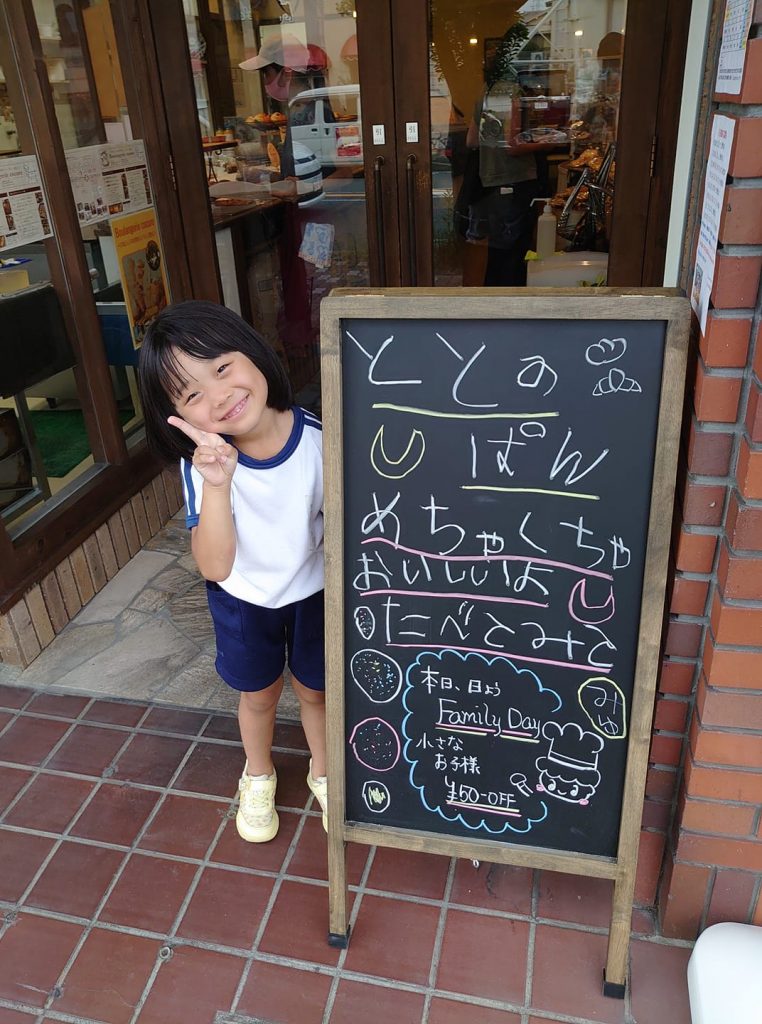 ととの
ぱん
めちゃくちゃ
おいしいよ
たべてみて
みゆ
本日、日よう
Family Day
小さな
お子様
¥50-OFF
引
引